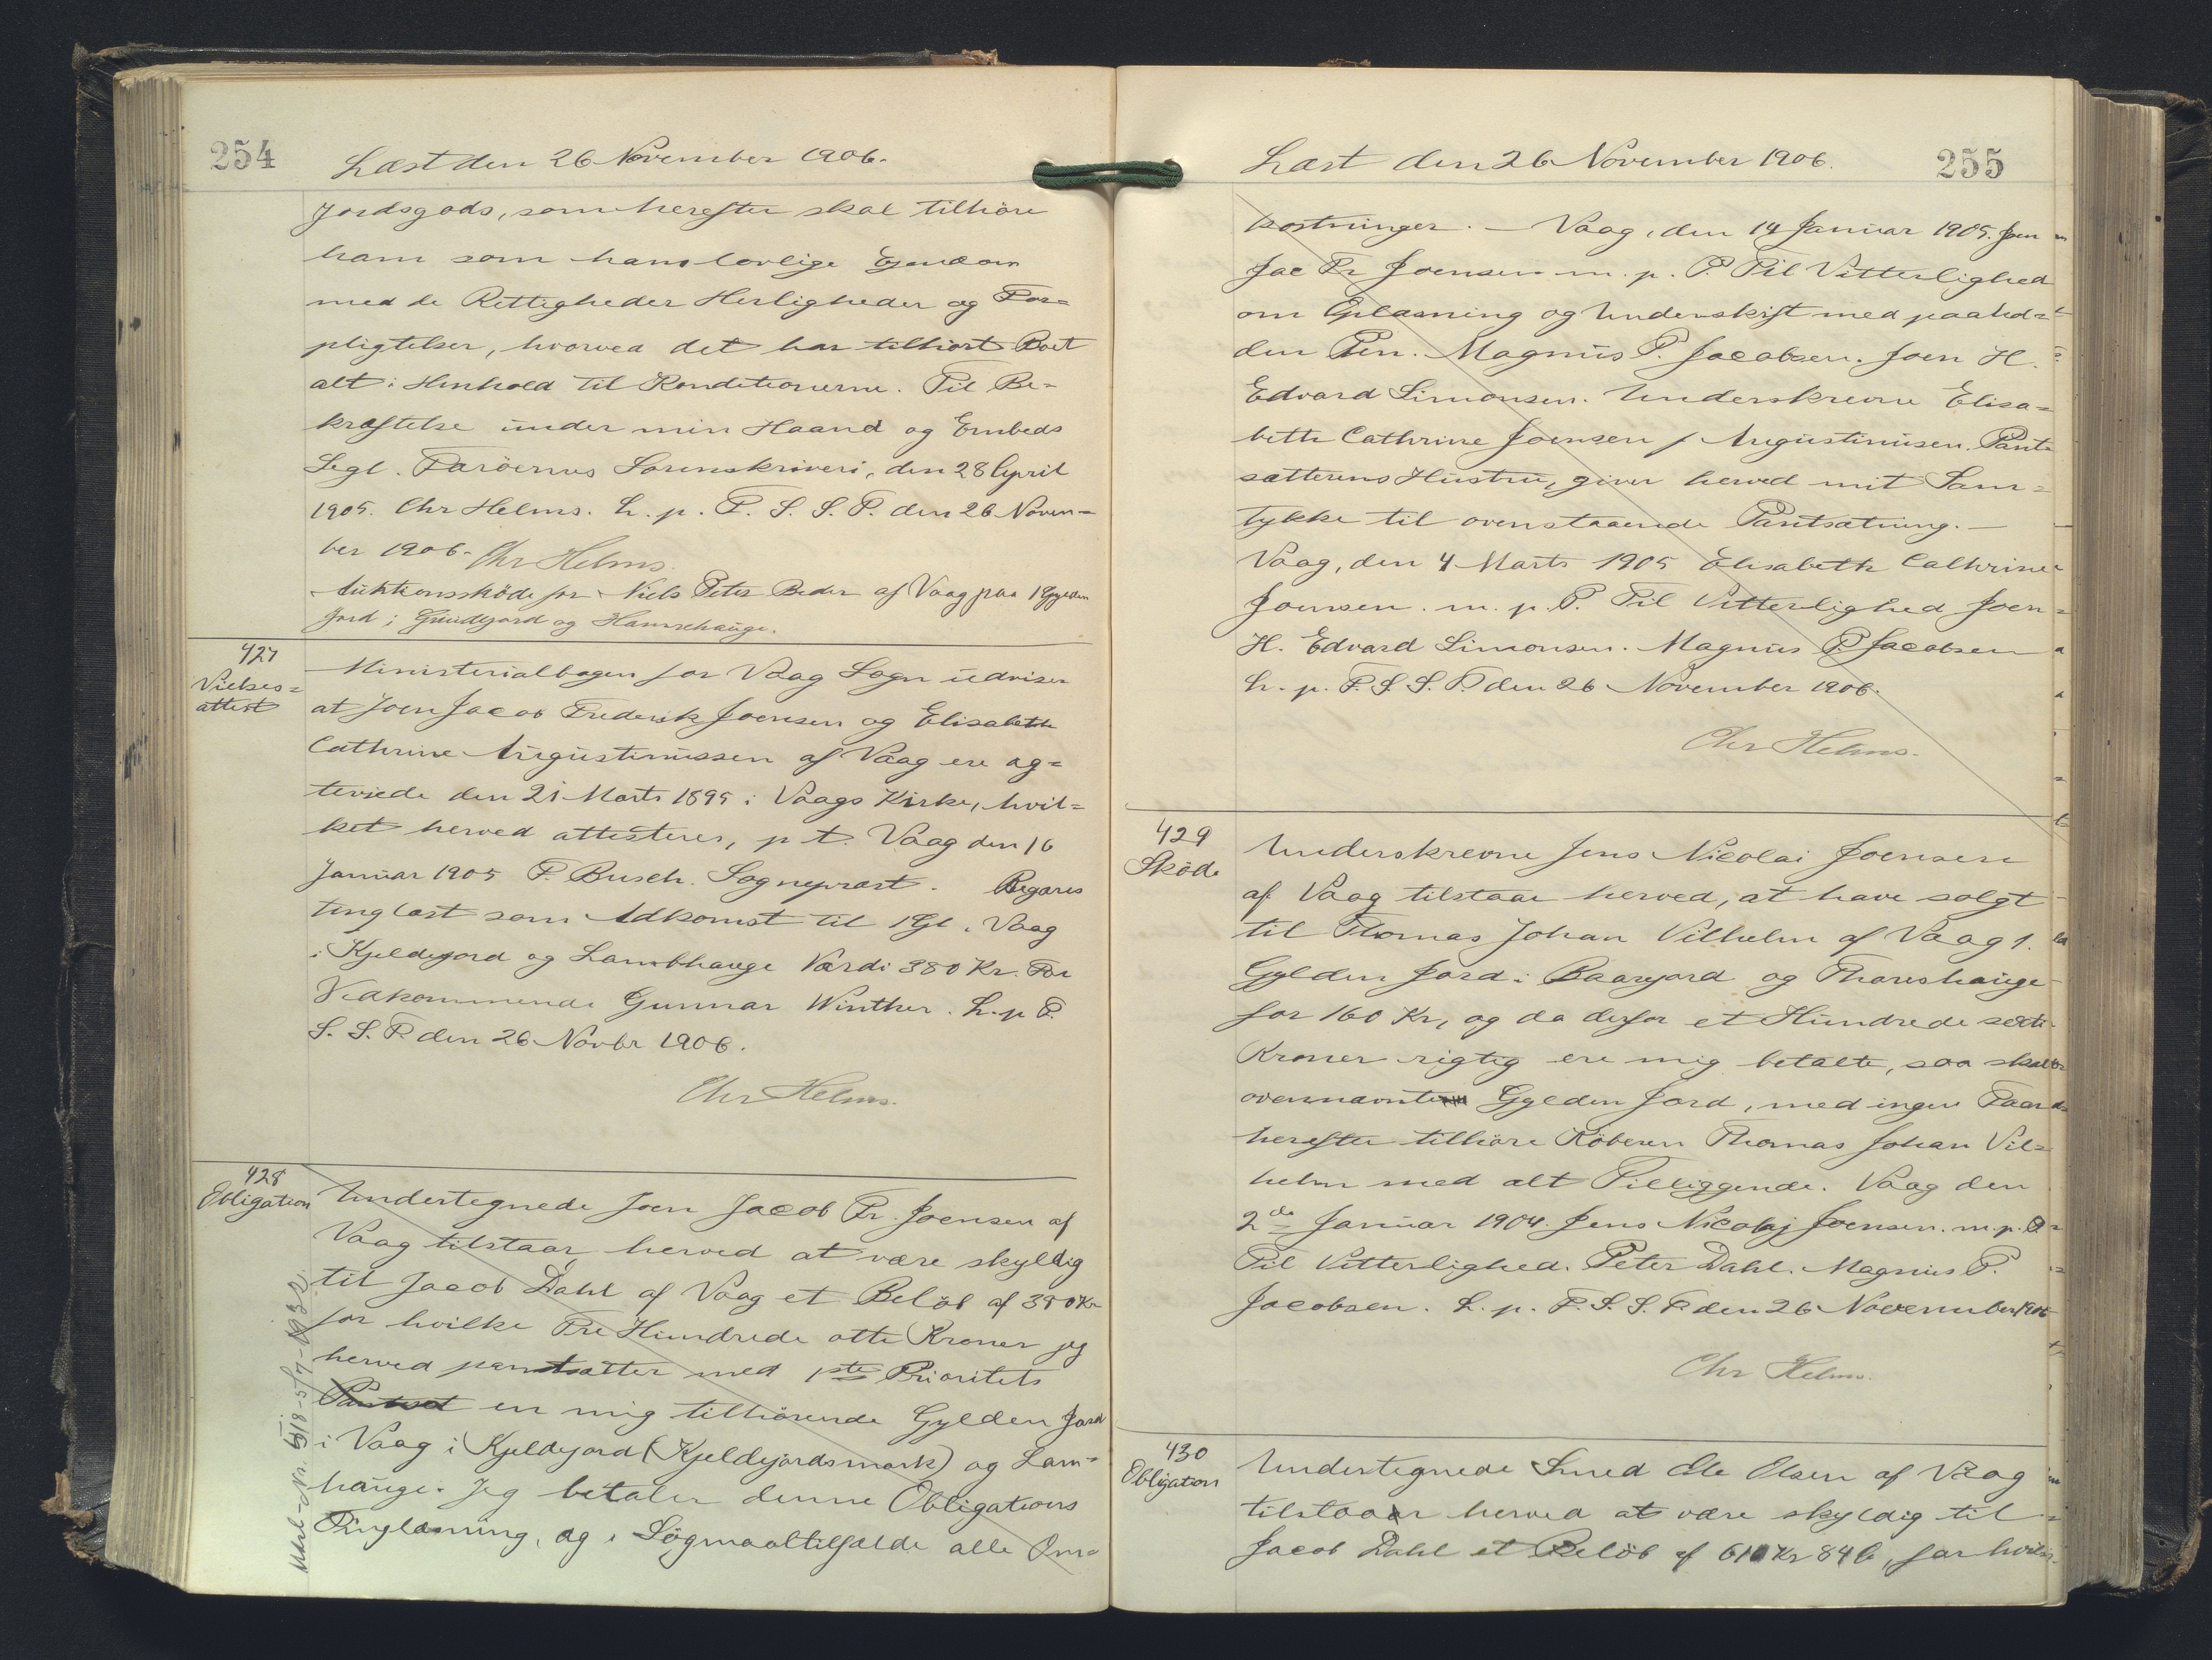 254
Læst den 26 November 1906.
Jordsgods, som herefter skal tilhöre
ham som hans lovlige Ejendom
med de Rettigheder Herligheder og For=
pligtelser, hvorved det har tilhørt Boet
alt i Henhold til Konditionerne. Til Be=
kræftelse under min Haand og Embeds
Segl. Færöernes Sorenskriveri, den 28 April
1905. Chr Helms. L. p. F. S. S. T. den 26 Novem=
ber 1906. Chr Helms.
Auktionsskjöde for Niels Peter Beder af Vaag paa 1 Gylden
Jord i Gundegjord og Hamrehauge.
427
Vielses=
attest
Ministerialbogen for Vaag Sogn udviser
at Joen Jacob Frederik Joensen og Elisabeth
Cathrine Augustinussen af Vaag ere æg=
teviede den 21 Marts 1895 i Vaags Kirke, hvil=
ket herved attesteres, p t. Vaag den 16
Januar 1905 P. Busch. Sognepræst. Begæres
tinglæst som Adkomst til 1 Gl. i Vaag
i Kjeldegjord og Lambhauge Værdi 380 Kr. For
Vedkommende Gunnar Winther. L. p F.
S. S. T. den 26 Novbr 1906.
Chr Helms.
428
Obligation
Undertegnede Joen Jacob Fr. Joensen af
Vaag tilstaar herved at være skyldig
til Jacob Dahl af Vaag et Belöb af 380 Kr
for hvilke Tre Hundrede otte Kroner jeg
herved pantsætter med 1ste Prioritets
Pantret en mig tilhörende Gylden Jord
i Vaag i Kjeldejord (Kjeldejordsmark) og Lam=
hauge. Jeg betaler denne Obligations
Tinglæsning, og i Sögmaaltilfælde alle Om=
255
Læst den 26 November 1906.
kostninger. — Vaag, den 14 Januar 1905. Joen
Jac Fr Joensen m. p. P. Til Vitterlighed
om Oplæsning og Underskift med paahol=
den Pen. Magnus P. Jacobsen. Joen H.
Edvard Simonsen. Underskrevne Elisa=
beth Cathrine Joensen f Augustinusen. Pant=
sætterens Hustru, giver herved mit Sam=
tykke til ovenstaaende Pantsætning. —
Vaag, den 4 Marts 1905 Elisabeth Cathrine
Joensen. m. p. P. Til Vitterlighed Joen=
H. Edvard Simonsen. Magnus P. Jacobsen
L. p. F. S. S. T. den 26 November 1906.
Chr Helms.
429
Sköde
Underskrevne Jens Nicolai Joensen
af Vaag tilstaar herved, at have solgt
til Thomas Johan Vilhelm af Vaag 1.
Gylden Jord i Baarejord og Thoreshauge
for 160 Kr, og da derfor et Hundrede sexti
Kroner rigtig ere mig betalte, saa skal
ovennævnte Gylden Jord, med ingen Faar
herefter tilhöre Köberen Thomas Johan Vil=
helm med alt Tilliggende. Vaag den
2de Januar 1904. Jens Nicolaj Joensen. m. p. P.
Til Vitterlighed. Peter Dahl. Magnus P.
Jacobsen. L. p. F. S. S. T. den 26 November 1906
Chr Helms.
430
Obligation
Undertegnede Smed Ole Olsen af Vaag
tilstaar herved at være skyldig til
Jacob Dahl et Belöb af 610 Kr 84 Ö, for hvilke